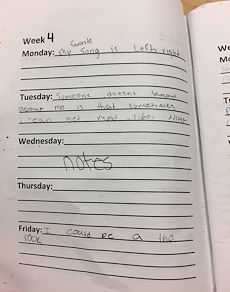 Week 4
favorite
Monday: my song is left right
Tuesday: Someone doesnt know
about me is that sometimes
i can get mad like that
Wednesday:
notes
Thursday:
Friday: I could be a the
rock